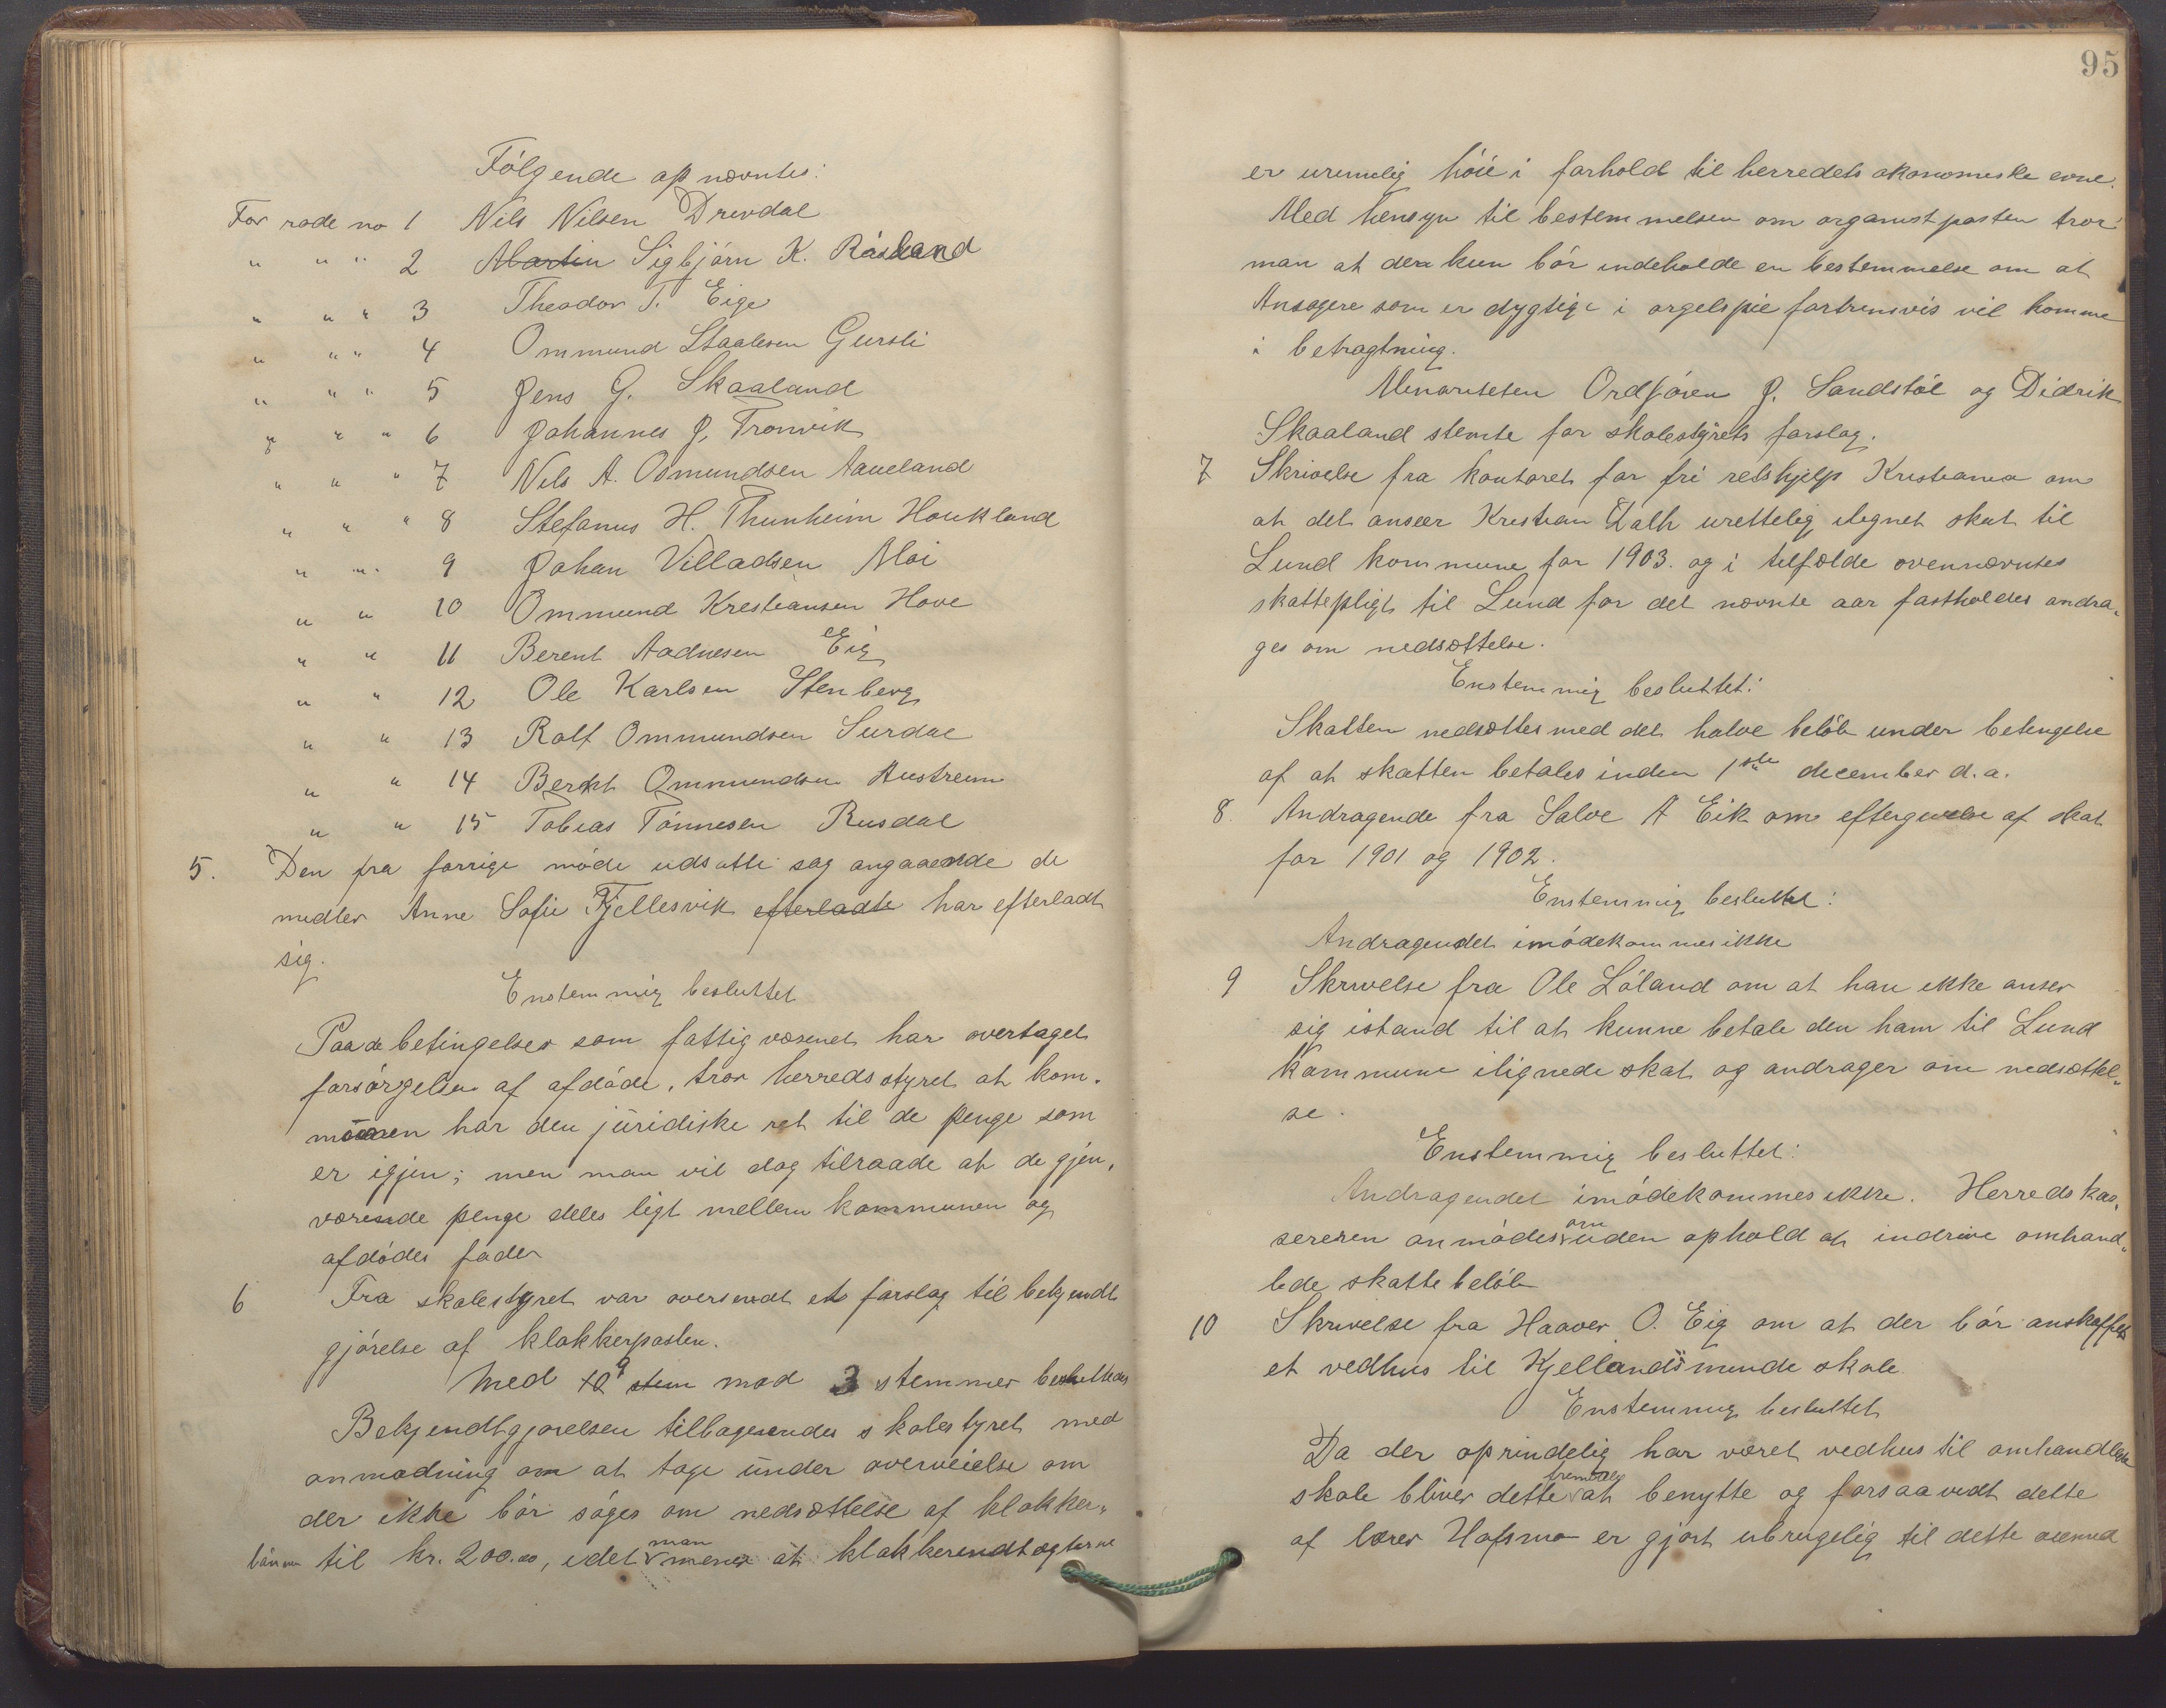 Følgende opnævntes:
For rode no 1 Nils Nilsen Drevdal
" " " 2 Martin Sigbjørn K. Råsland
" " " 3 Theodor T. Eige
" " " 4 Ommund Staalesen Gursli
" " " 5 Jens G. Skaaland
" " " 6 Johannes J. Tronvik
" " " 7 Nils A. Osmundsen Aaveland
" " " 8 Stefanus H. Thunheim Houkland
" " " 9 Johan Villadsen Moi
" " 10 Ommund Kristiansen Hove
" " 11 Berent Aadnesen Eig
" " 12 Ole Karlsen Stenberg
" " 13 Rolf Ommundsen Surdal
" " 14 Berkt Ommundsen Austreim
" " 15 Tobias Tønnesen Rusdal
5. Den fra forrige møde udsatte sag angaaende de
midler Anne Sofie Fjellesvik efterladte har efterladt
sig.
Enstemmig besluttet
Paa de betingelser som fattigvæsenet har overtaget
forsørgelsen af afdøde, tror herredsstyret at kom-
munen har den juridiske ret til de penge som
er igjen; men man vil dog tilraade at de gjen-
værende penge deles ligt mellem kommunen og
afdødes fader
6 Fra skolestyret var oversendt et forslag til bekjendt
gjørelse af klokkerposten.
Med 10 9 stem mod 3 stemmer besluttedes
Bekjendtgjørelsen tilbagesendes skolestyret med
anmodning om at tage under overveielse om
der ikke bør søges om nedsættelse af klokker-
lønnen til kr. 200.00, idet man mener at klokkerindtægterne
95
er urimelig høie i forhold til herredets økonomiske evne.
Med hensyn til bestemmelsen om organistposten tror
man at der kun bør indeholde en bestemmelse om at
Ansøgere som er dygtige i orgelspil fortrinsvis vil komme
i betragtning.
Minoriteten Ordføren J. Sandstøl og Didrik
Skaaland stemte for skolestyrets forslag.
7 Skrivelse fra kontoret for fri retshjelp Kristiania om
at det anseer Kristian Dalh urettelig ilignet skat til
Lund kommune for 1903. og i tilfælde ovennævntes
skattepligt til Lund for det nævnte aar fastholdes andra-
ges om nedsættelse.
Enstemmig besluttet:
Skatten nedsættes med det halve beløb under betingelse
af at skatten betales inden 1ste december d.a.
8 Andragende fra Salve A Eik om eftergivelse af skat
for 1901 og 1902.
Enstemmig besluttet:
Andragendet imødekommes ikke
9 Skrivelse fra Ole Løland om at han ikke anser
sig istand til at kunne betale den ham til Lund
Kommune ilignede skat og andrager om nedsættel-
se.
Enstemmig besluttet:
Andragendet imødekommes ikke. Herredskas-
sereren anmodes om uden ophold at indrive omhand-
lede skattebeløb
10 Skrivelse fra Haaver O. Eig om at der bør anskaffes
et vedhus til Kjellandsmunde skole
Enstemmig besluttet
Da der oprindelig har været vedhus til omhandlede
skole bliver dette fremdeles at benytte og forsaavidt dette
af lærer Hofsmo er gjort ubrugelig til dette øiemed